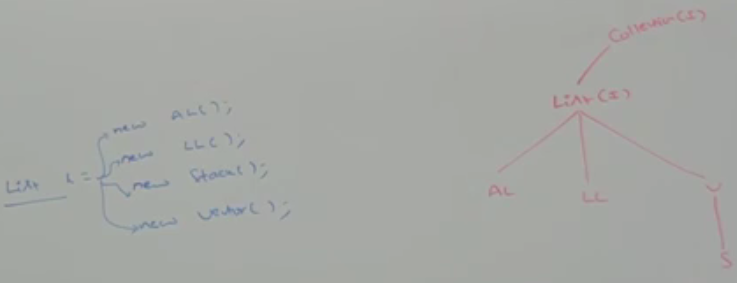 List l =
new AL();
new LL();
new Stack();
new Vector();
Collection(I)
List(I)
AL LL V
S